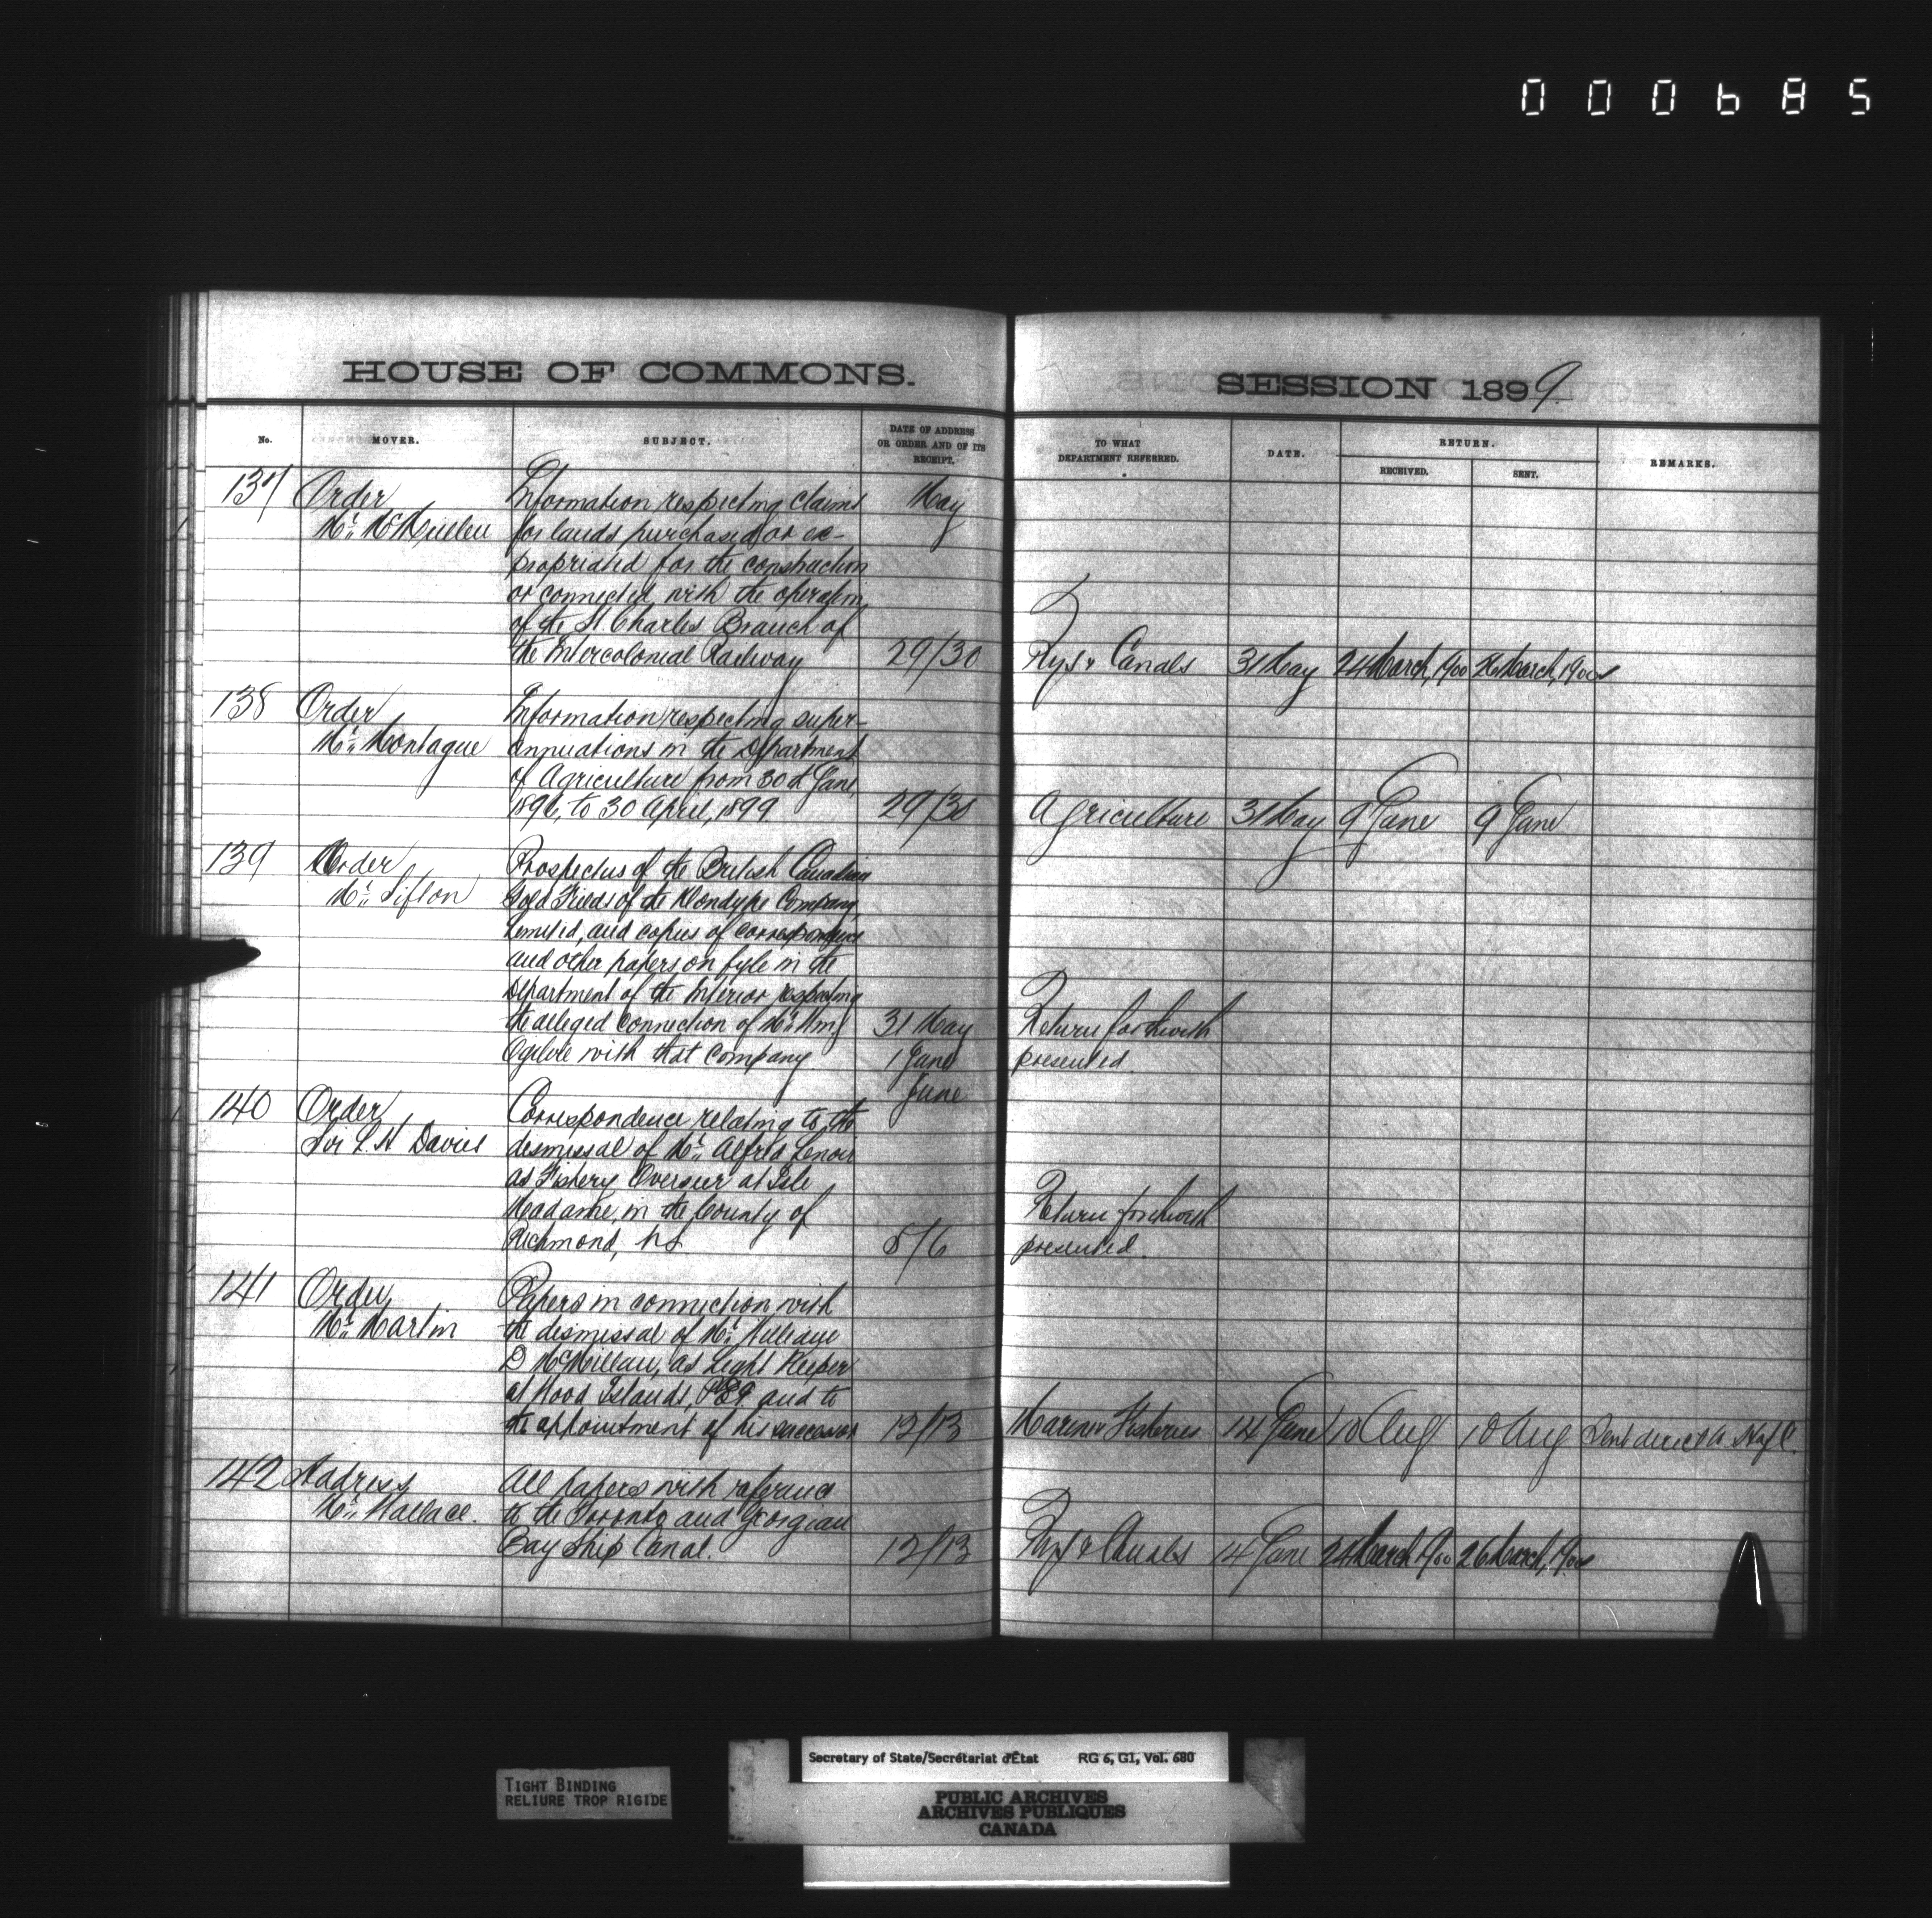 000685
HOUSE OF COMMONS.
SESSION 1899
No.
MOVER.
SUBJECT.
DATE OF ADDRESS
OR ORDER AND OF ITS
RECEIPT.
TO WHAT
DEPARTMENT REFERRED.
DATE.
RETURN.
RECEIVED.
SENT.
REMARKS.
137 Order Information respecting claims May
Mr. McMullen for lands purchased or ex-
propriated for the construction
or connected with the operation
of the St. Charles Branch of
the Intercolonial Railway 29/30 Rys & Canals 31 May 24 March, 1900 26 March, 1900
138 Order Information respecting super-
Mr. Montague annuations in the Department
of Agriculture from 30th June,
1896, to 30 April, 1899 29/30 Agriculture 31 May 9 June 9 June
139 Order Prospectus of the British Canadian
Mr. Sifton Gold Fields of the Klondyke Company,
Limited, and copies of correspondence
and other papers on fyle in the
Department of the Interior respecting
the alleged connection of Mr. Wm. 31 May Return forthwith
Ogilvie with that Company. 1 June presented.
June
140 Order Correspondence relating to the
Sir L. H Davies dismissal of Mr. Alfred Lenoir
as Fishery Overseer at Isle
Madame, in the County of Return forthwith
Richmond, N.S. 5/6 presented.
141 Order Papers in connection with
Mr. Martin the dismissal of Mr. William
D McMillan, as Light Keeper
at Wood Islands, P.E.I. and to
the appointment of his successor 12/13 Marine & Fisheries 14 June 10 Aug 10 Aug Sent direct to H of C.
142 Address All papers with reference
Mr. Wallace. to the Toronto and Georgian
Bay Ship Canal. 12/13 Rys & Canals 14 June 24 March 1900 26 March, 1900
TIGHT BINDING
RELIURE TROP RIGIDE
Secretary of State/Secrétariat d'État RG 6, G1, Vol. 680
PUBLIC ARCHIVES
ARCHIVES PUBLIQUES
CANADA